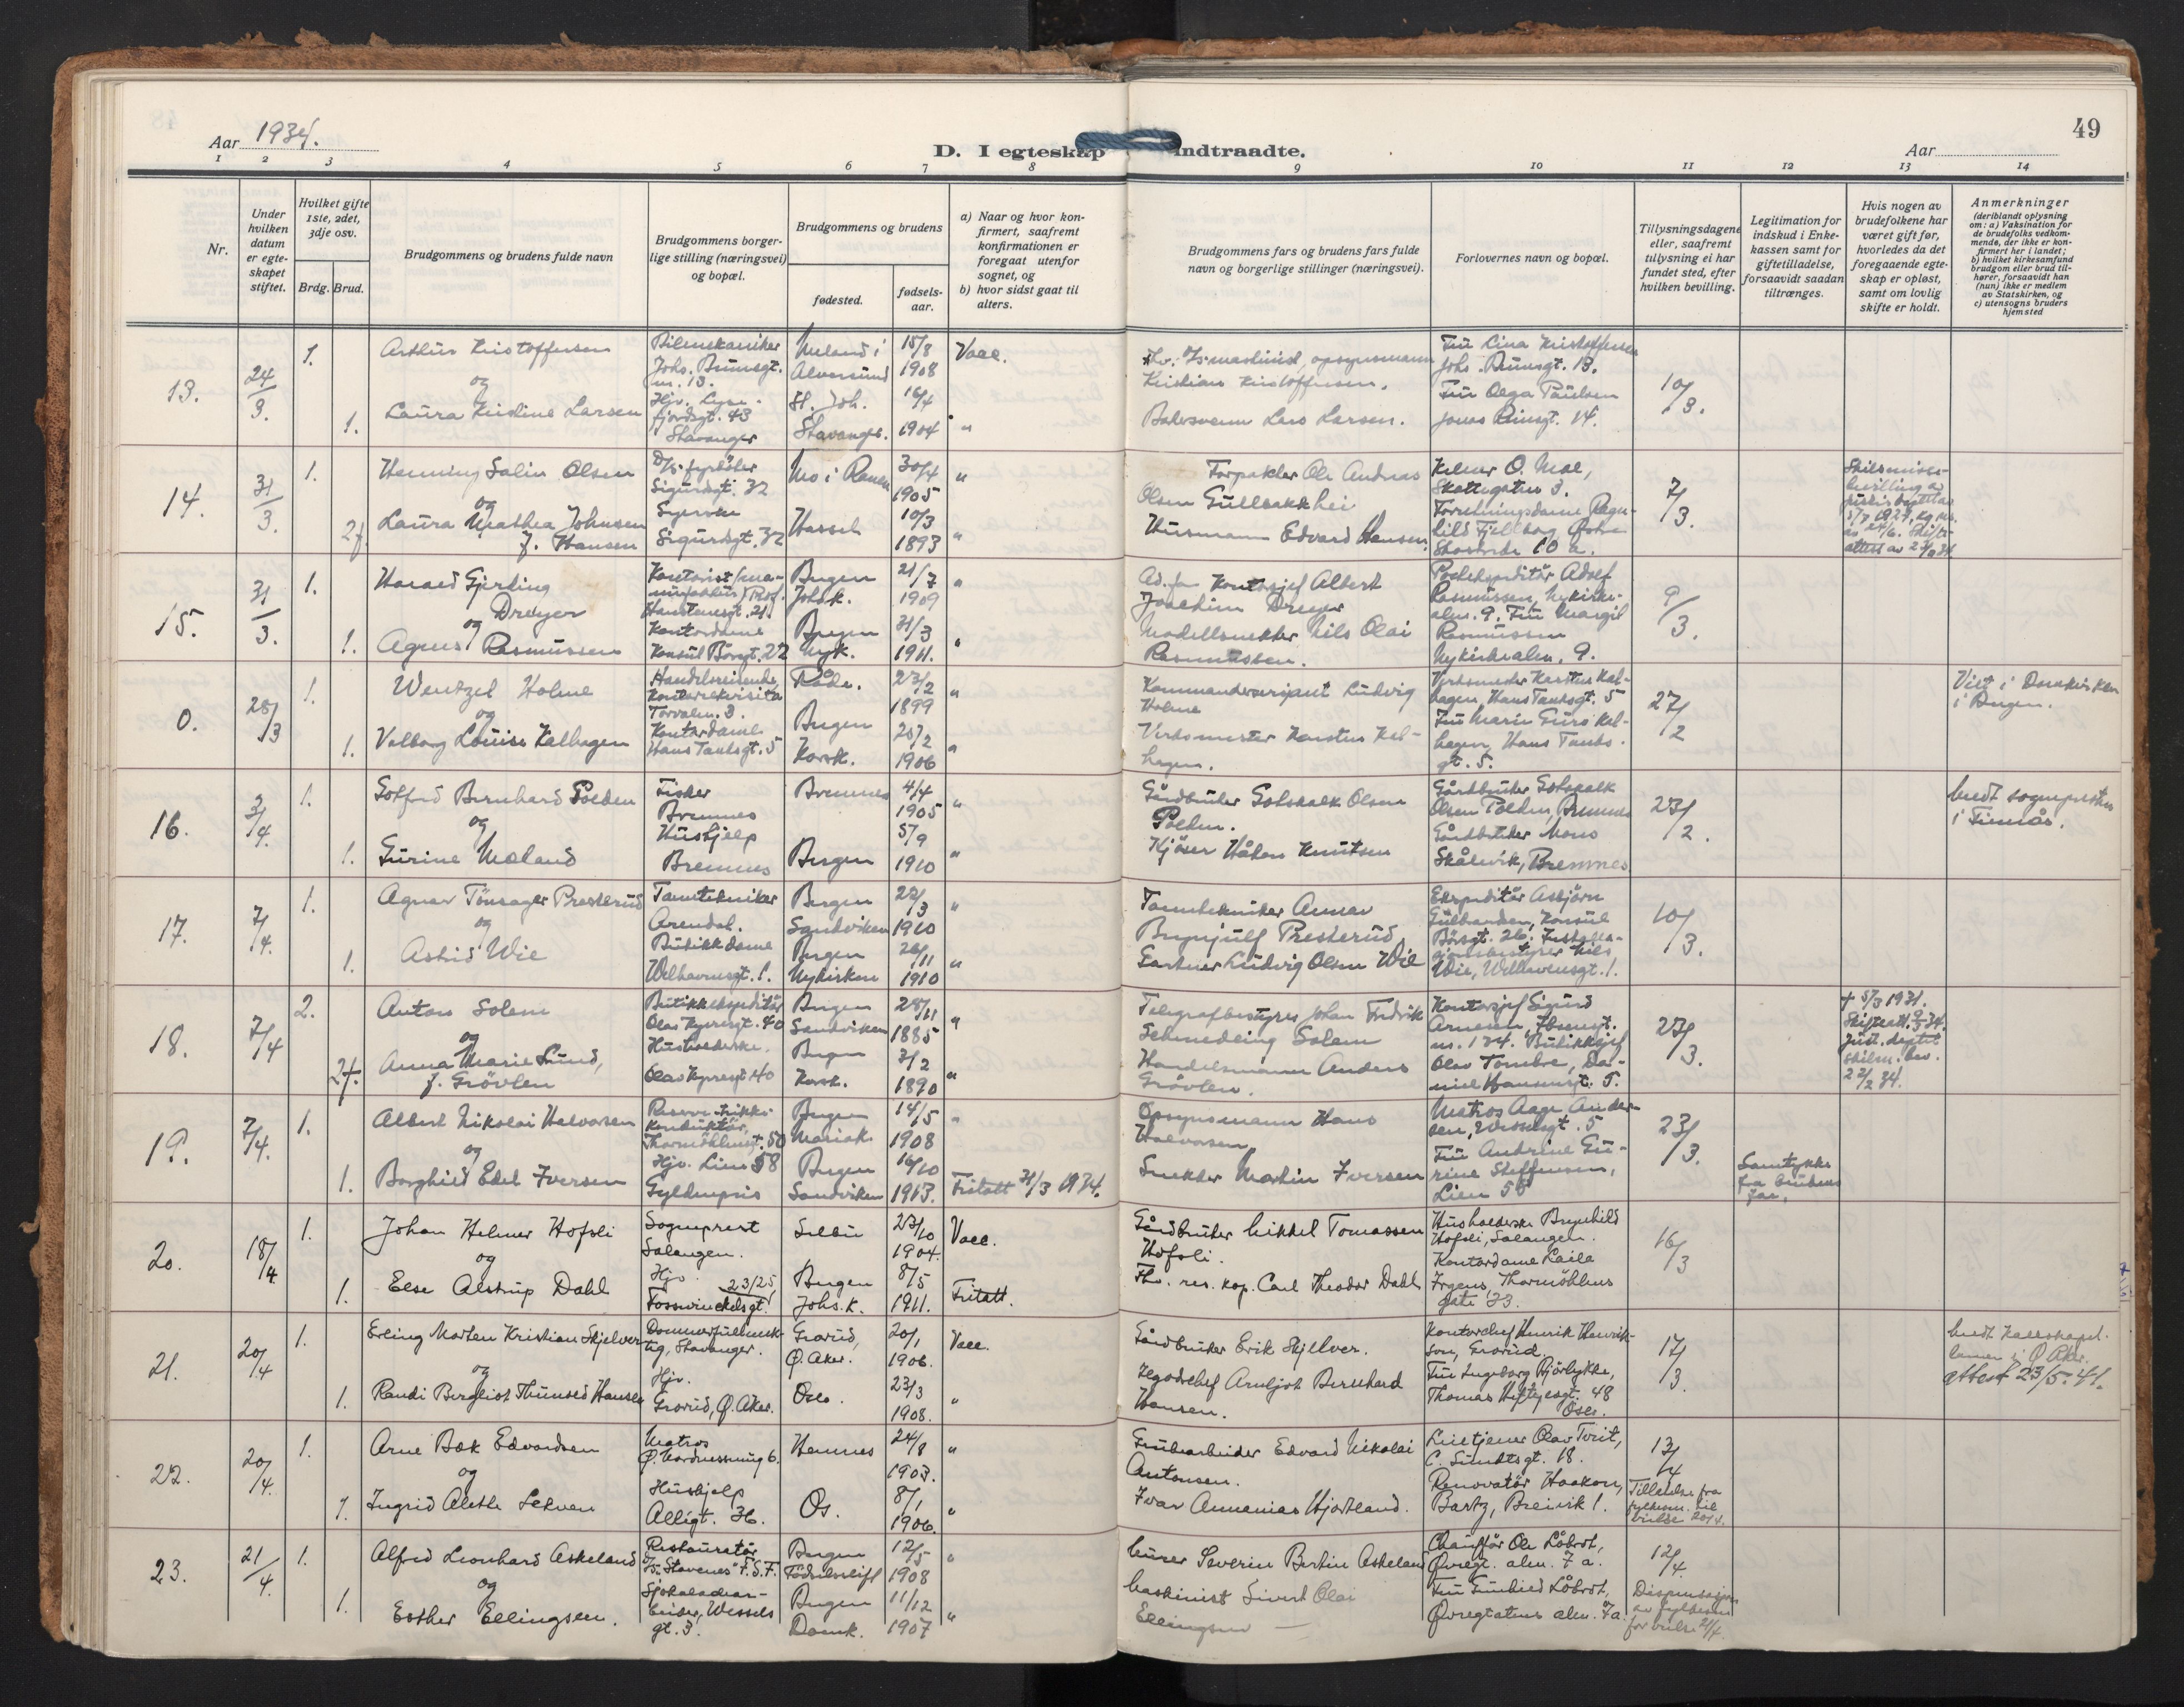 49
Aar 1934.
D. I egteskap indtraadte.
Aar
1 2 3 4 5 6 7 8 9 10 11 12 13 14
Nr.
Under hvilken datum er egteskapet stiftet.
Hvilket gifte 1ste, 2det, 3dje osv.
Brdg. Brud.
Brudgommens og brudens fulde navn
Brudgommens borgerlige stilling (næringsvei) og bopæl.
Brudgommens og brudens
fødested.
fødselsaar.
a) Naar og hvor konfirmert, saafremt konfirmationen er foregaat utenfor sognet, og
b) hvor sidst gaat til alters.
Brudgommens fars og brudens fars fulde navn og borgerlige stillinger (næringsvei).
Forlovernes navn og bopæl.
Tillysningsdagene eller, saafremt tillysning ei har fundet sted, efter hvilken bevilling.
Legitimation for indskud i Enkekassen samt for giftetilladelse, forsaavidt saadan tiltrænges.
Hvis nogen av brudefolkene har været gift før, hvorledes da det foregaaende egteskap er opløst, samt om lovlig skifte er holdt.
Anmerkninger
(deriblandt oplysning om: a) Vaksination for de brudefolks vedkommende, der ikke er konfirmert her i landet;
b) hvilket kirkesamfund brudgom eller brud tilhører, forsaavidt han (hun) ikke er medlem av Statskirken, og
c) utensogns bruders hjemsted
13. 24/3. 1. Arthur Kristoffersen
og
1. Laura Kristine Larsen
Bilmekaniker
Johs. Brunsgt.
nr. 13.
Stavanger
Meland i
Alversund
15/8 1908
St. Joh.
Stavanger.
16/4 1904
Vacc.
Kristian Kristoffersen.
Lars Larsen.
Fru Lina Kristoffersen
Johs. Brunsgt. 13.
Fru Olga Paulsen
Jonas Reinsgt. 14.
10/3.
14. 31/3. 1. Henning Salin Olsen
og
2f. Laura Mathea Johnsen
f. Hansen
D/S fyrbøter
Sigurdsgt. 32
Syerske
Sigurdsgt. 32
Mo i Rana
30/4 1905
Hassel
10/3 1893
Forpakter Ole Andreas
Olsen Gullbakkhei
Husmann Edvard Hansen.
Helmer O. Moe,
Skottegaten 3.
7/3.
15. 31/3. 1. Harald Gjerding
Dreyer
og
1. Agnes Rasmussen
Kontordame
Konsul Børsgt. 22
Bergen
Johsk.
21/7 1909
Bergen
Nyk.
31/3 1911.
Kontorsjef Albert
Joachim Dreyer
Modellsnekker Nils Olai
Rasmussen.
Postekspeditør Adolf
Rasmussen, Nykirke-
alm. 9. Fru Margit
Rasmussen
Nykirkealm. 9.
9/3.
0. 28/3 1. Wentzel Holme
og
1. Valborg Louise Kalhagen
Handelsreisende,
Torvalm. 3.
Kontordame
Hans Tanksgt. 5
Råde.
23/2 1899
Bergen
Korsk.
25/2 1906
Kommandersersjant Ludvig
Holme
Verksmester Karsten Kal-
hagen.
Verksmester Karsten Kal-
hagen, Hans Tanksgt. 5
Fru Marie Guro Kal-
hagen, Hans Tanks-
gt. 5.
27/2
Viet i Domkirken
i Bergen.
16. 3/4. 1. Gotfred Bernhard Polden
og
1. Gurine Mæland
Fisker
Bremnes
Hushjelp
Bremnes
Bremnes
4/4 1905
Bergen
5/9 1910
Gårdbruker Gotskalk Olsen
Polden.
Kjører Håkon Knutsen
Gårdbruker Gotskalk
Olsen Polden, Bremnes
Gårdbruker Mons
Skålevik, Bremnes
23/2.
medt sognepresten
i Finnås.
17. 7/4. 1. Agnar Tönsager Presterud
og
1. Astrid Wie
Tanntekniker
Arendal.
Butikkdame
Welhavensgt. 1.
Bergen
Sandviken
22/3 1910
Bergen
Nykirken
26/11 1910
Tanntekniker Annar
Brynjulf Presterud
Gartner Ludvig Olsen Wie
Ekspeditør Asbjørn
Gulbranden, Konsul
Børsgt. 26.
Wie, Welhavensgt. 1.
10/3.
18. 7/4 2. Anton Solem
og
2f. Anna Marie Lund,
f. Grövlen
Butikkekspeditør
Olav Kyrresgt. 40
Husholderske.
Olav Kyrresgt 40
Bergen
Sandviken
28/11 1885
Bergen
Korsk.
3/2 1890
Telegrafbestyrer Johan Fredrik
Schmedeing Solem
Handelsmann Anders
Grövlen.
Kontorsjef Sigurd
Arnesen, Ibsensgt.
nr. 124. Butikksjef
Olav Tombre, Da-
niel Hansensgt. 5.
23/3.
+ 5/3 1931.
19. 7/4. 1. Albert Nikolai Halvorsen
og
1. Borghild Edel Iversen
Reserve trikke-
konduktør,
Thormöhlensgt. 50
Hjv. Lien 58
Gyldenpris
Bergen
Mariak.
14/5 1908
Bergen
Sandviken
16/10 1913.
Fritatt 31/3 1934.
Opsynsmann Hans
Halvorsen
Snekker Martin Iversen
Matros Aage Ander-
sen, Wesselsgt. 5
Fru Andrine Gu-
rine Steffensen,
Lien 58
23/3.
Samtykke
fra brudens
far.
20. 18/4 1. Johan Helmer Hofsli
og
1. Else Alstrup Dahl
Sogneprest
Salangen.
Hjv. 23/25,
Fosswinckelsgt.
Selbu
23/10 1904.
Bergen
Johs. K.
8/5 1911.
Vacc.
Fritatt.
Gårdbruker Mikkel Tomassen
Hofsli.
Fhv. res. kap. Carl Theodor Dahl
Husholderske Brynhild
Hofsli, Salangen.
Kontordame Laila
Irgens, Thormöhlens
gate 23.
16/3
21. 20/4 1. Erling Morten Kristian Skjelver
og
1. Randi Bergliot Thunsed Hansen
Dommerfullmek-
tig, Stavanger.
Hjv.
Grorud, Ø. Aker.
Grorud,
Ø. Aker.
20/1 1906.
Oslo.
23/3 1908.
Vacc.
Gårdbruker Erik Skjelver.
Jegodschef Arnljot Bernhard
Hansen.
Kontorchef Henrik Henrik-
son, Grorud.
Fru Ingeborg Bjørlykke,
Thomas Heftyesgt. 48
Oslo.
17/3.
attest 23/5. 41.
22. 20/4. 1. Arne Bæk Edvardsen
og
1. Ingrid Alethe Lekven
Matros
Ø. Nordnessmug 6.
Hushjelp
Allégt. 36.
Hemnes
24/8 1903.
Os.
8/1 1906.
Grubearbeider Edvard Nikolai
Antonsen.
Ivar Annanias Hjortland.
C. Sundtsgt. 18.
Renovatør Haakon
Bartz, Breivik 1.
13/4
Tilladelse fra
fylkesm. til
vielse 20/4.
23. 21/4. 1. Alfred Leonhard Askeland
og
1. Esther Ellingsen.
Restauratør
D/S "Stavenes" F.S.F.
Sjokoladear-
beider, Wessels
gt. 3.
Bergen
Fødselsstift
12/5 1908
Bergen
Domk.
11/12 1907
Murer Severin Bertin Askeland
Maskinist Sivert Olai
Ellingsen
Chauffør Ole Låbrot,
Øvregt. alm. 7 a.
Fru Gunhild Låbrot,
Øvregatens alm. 7a.
12/4
Dispensasjon
av fylkesm.
for vielse 21/4.